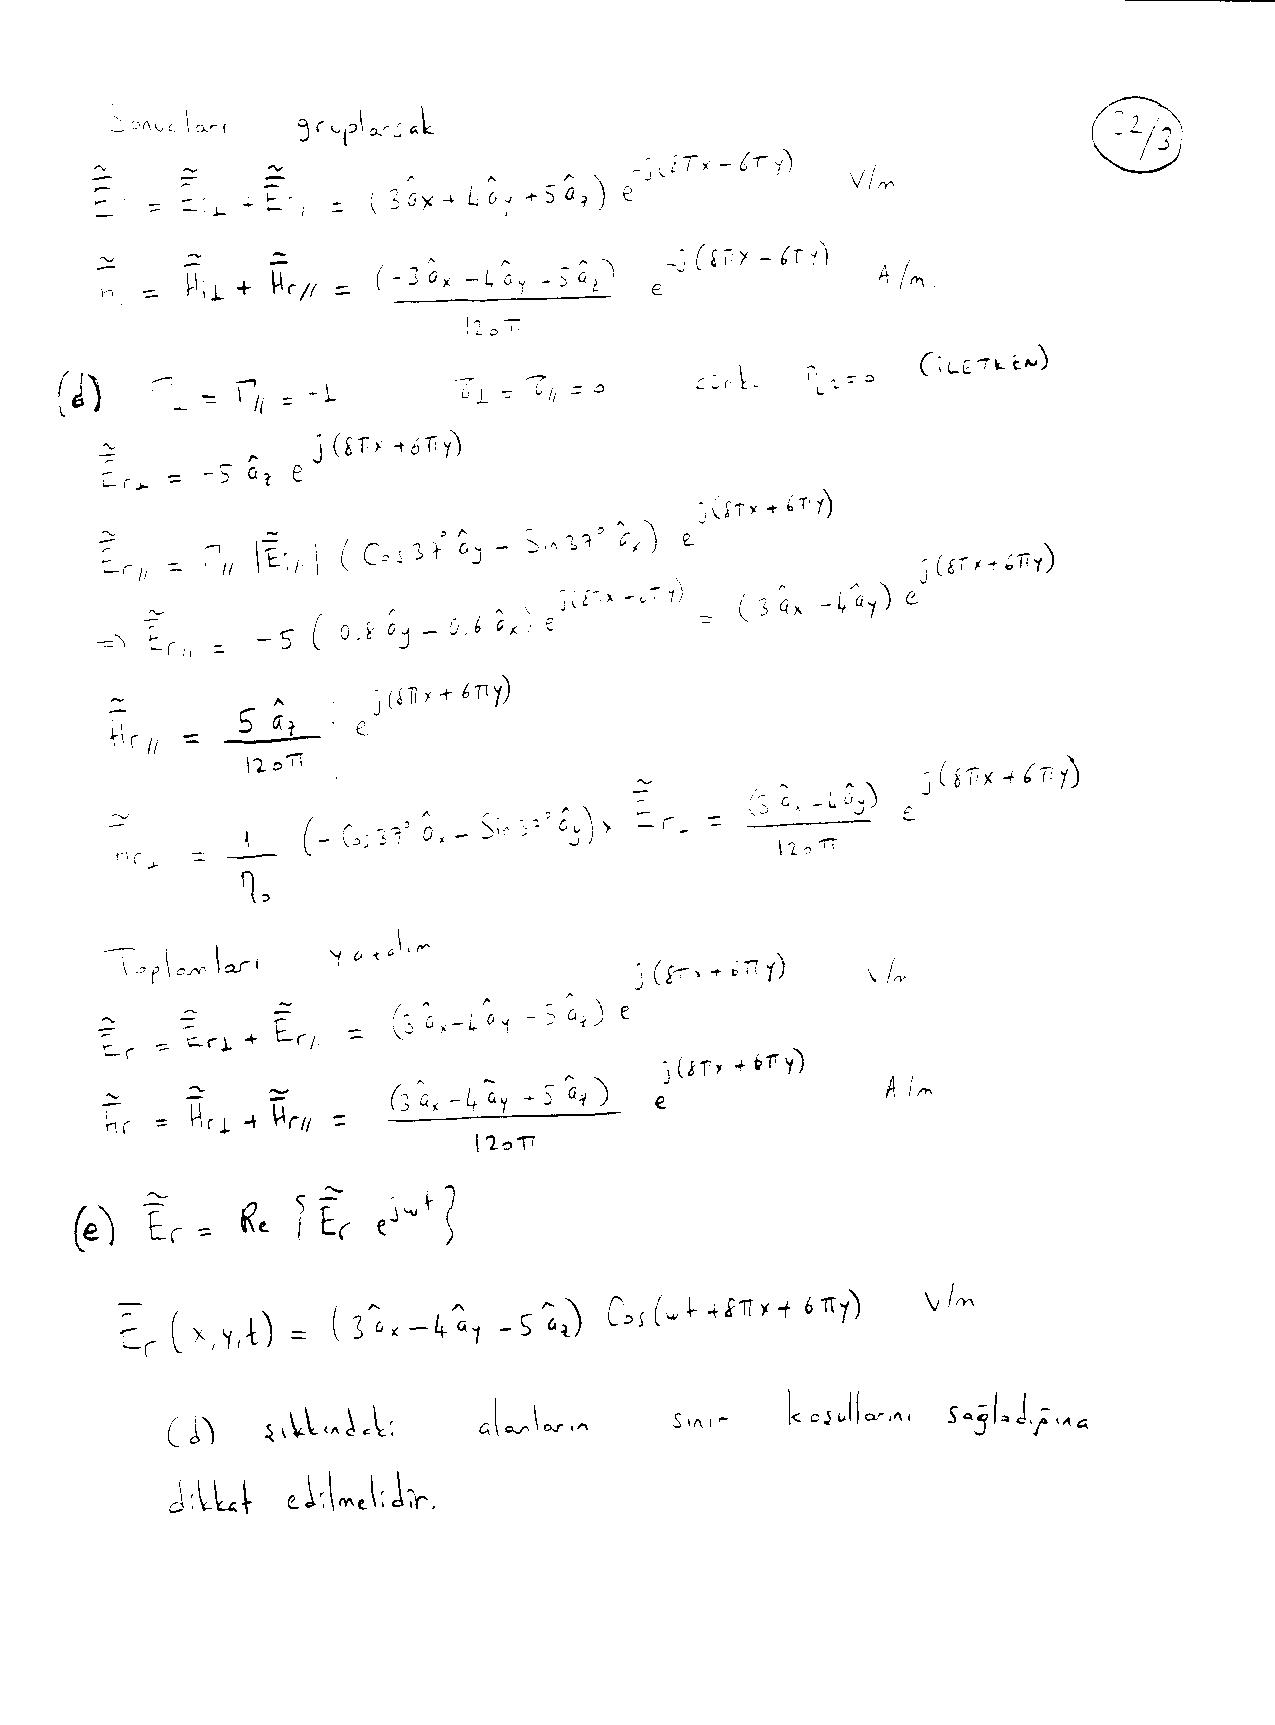 Sonuçları gruplarsak
22/3
Ẽi = Ẽi⊥ + Ẽi// = (3âx + 4ây + 5âz) e^-j(8πx - 6πy) V/m
= H̃i⊥ + H̃r// = (-3âx - 4ây - 5âz) / 120π e^-j(8πx - 6πy) A/m.
(d) Γ⊥ = Γ// = -1 τ⊥ = τ// = 0 çünkü η2 = 0 (İLETKEN)
Ẽr⊥ = -5 âz e^j(8πx + 6πy)
Ẽr// = Γ// |Ẽi//| (Cos37° ây - Sin37° âx) e^j(8πx + 6πy)
=> Ẽr// = -5 (0.8 ây - 0.6 âx) e^j(8πx + 6πy) = (3âx - 4ây) e^j(8πx + 6πy)
H̃r// = 5 âz / 120π e^j(8πx + 6πy)
H̃r⊥ = 1/η0 (-Cos37° âx - Sin37° ây) x Ẽr⊥ = (3âx - 4ây) / 120π e^j(8πx + 6πy)
Toplamları yazalım
Ẽr = Ẽr⊥ + Ẽr// = (3âx - 4ây - 5âz) e^j(8πx + 6πy) V/m
H̃r = H̃r⊥ + H̃r// = (3âx - 4ây + 5âz) / 120π e^j(8πx + 6πy) A/m
(e) Ẽr = Re {Ẽr e^jωt}
Ēr (x,y,t) = (3âx - 4ây - 5âz) Cos(ωt + 8πx + 6πy) V/m
(d) şıkkındaki alanların sınır koşullarını sağladığına
dikkat edilmelidir.